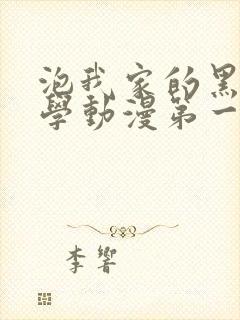 泡我家的黑
學動漫第一
李響